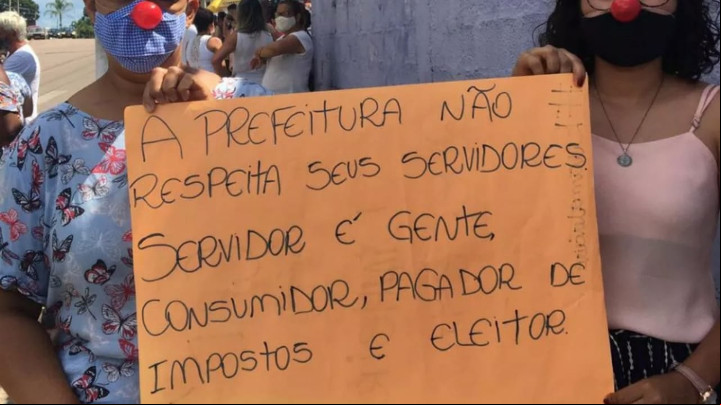 A PREFEITURA NÃO
RESPEITA SEUS SERVIDORES.
SERVIDOR É GENTE,
CONSUMIDOR, PAGADOR DE
IMPOSTOS E ELEITOR.